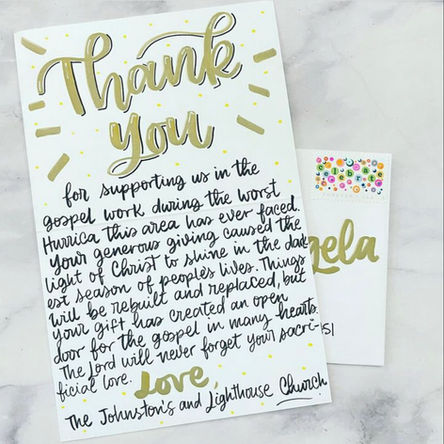 Thank
you
for supporting us in the
gospel work during the worst
Hurrica this area has ever faced.
Your generous giving caused the
light of Christ to shine in the dark
est season of people's lives. Things
will be rebuilt and replaced, but
your gift has created an open
door for the gospel in many hearts.
The Lord will never forget your sacri-
ficial love.
Love,
The Johnston's and Lighthouse Church
celebrate
gela